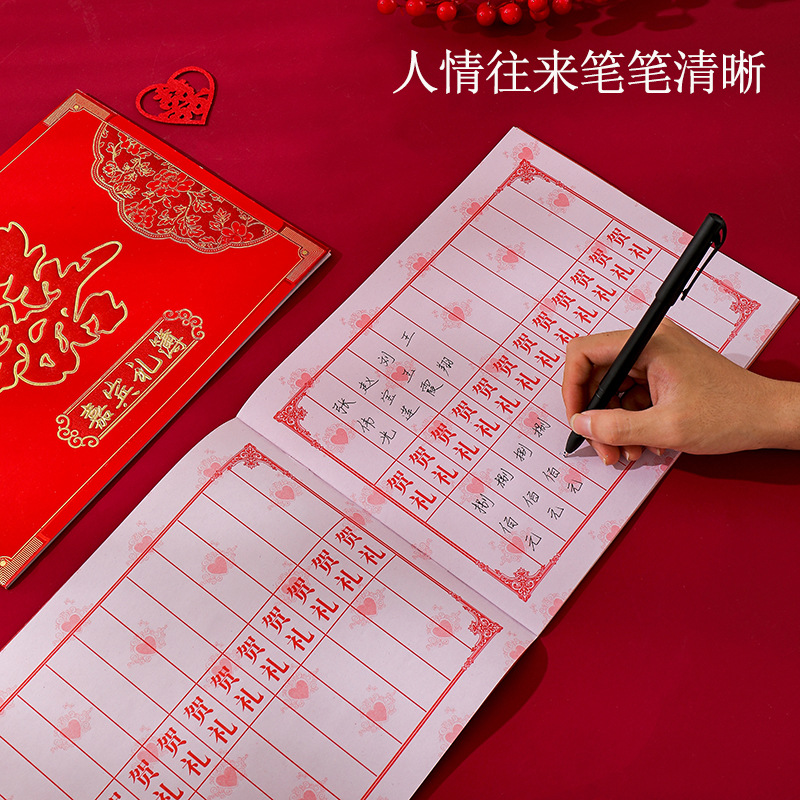 人情往来笔笔清晰
嘉宾礼簿
贺礼
贺礼
贺礼
贺礼
贺礼
贺礼
王翔 贺礼 捌
刘玉霞 贺礼 捌佰元
赵宝莲 贺礼 捌佰元
张伟光 贺礼 捌佰元
贺礼
贺礼
贺礼
贺礼
贺礼
贺礼
贺礼
贺礼
贺礼
贺礼